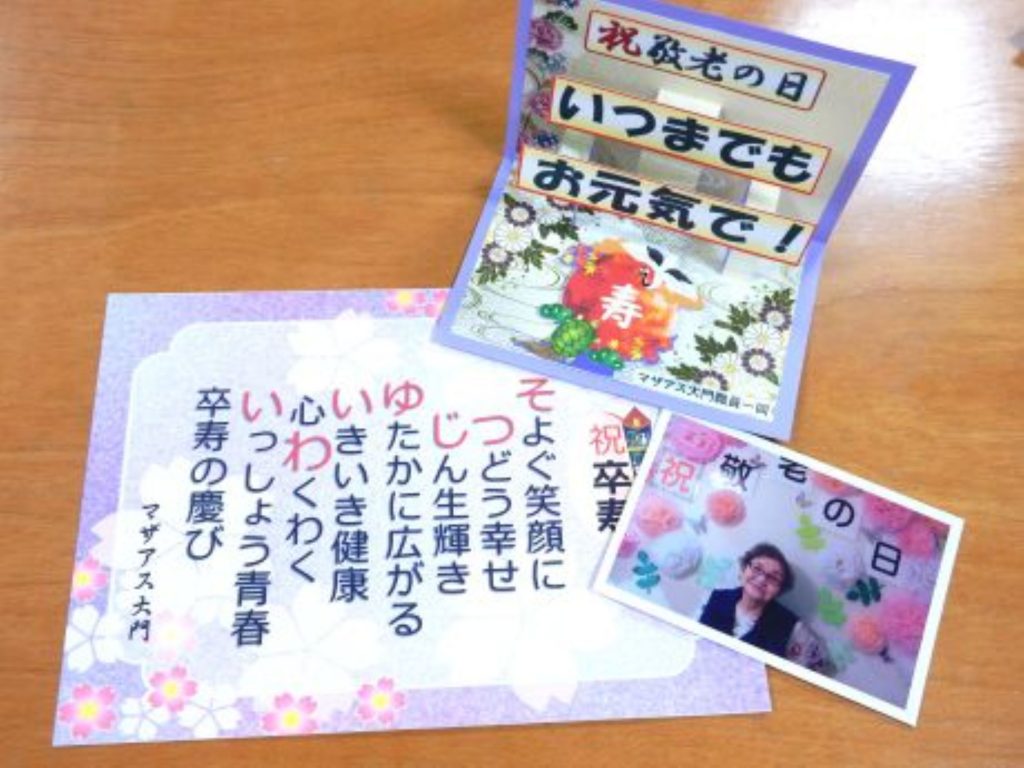 祝敬老の日
いつまでも
お元気で！
寿
マザアス大門職員一同
祝
卒寿
そよぐ笑顔に
つどう幸せ
じん生輝き
ゆたかに広がる
いきいき健康
心わくわく
いっしょう青春
卒寿の慶び
マザアス大門
祝敬老の日